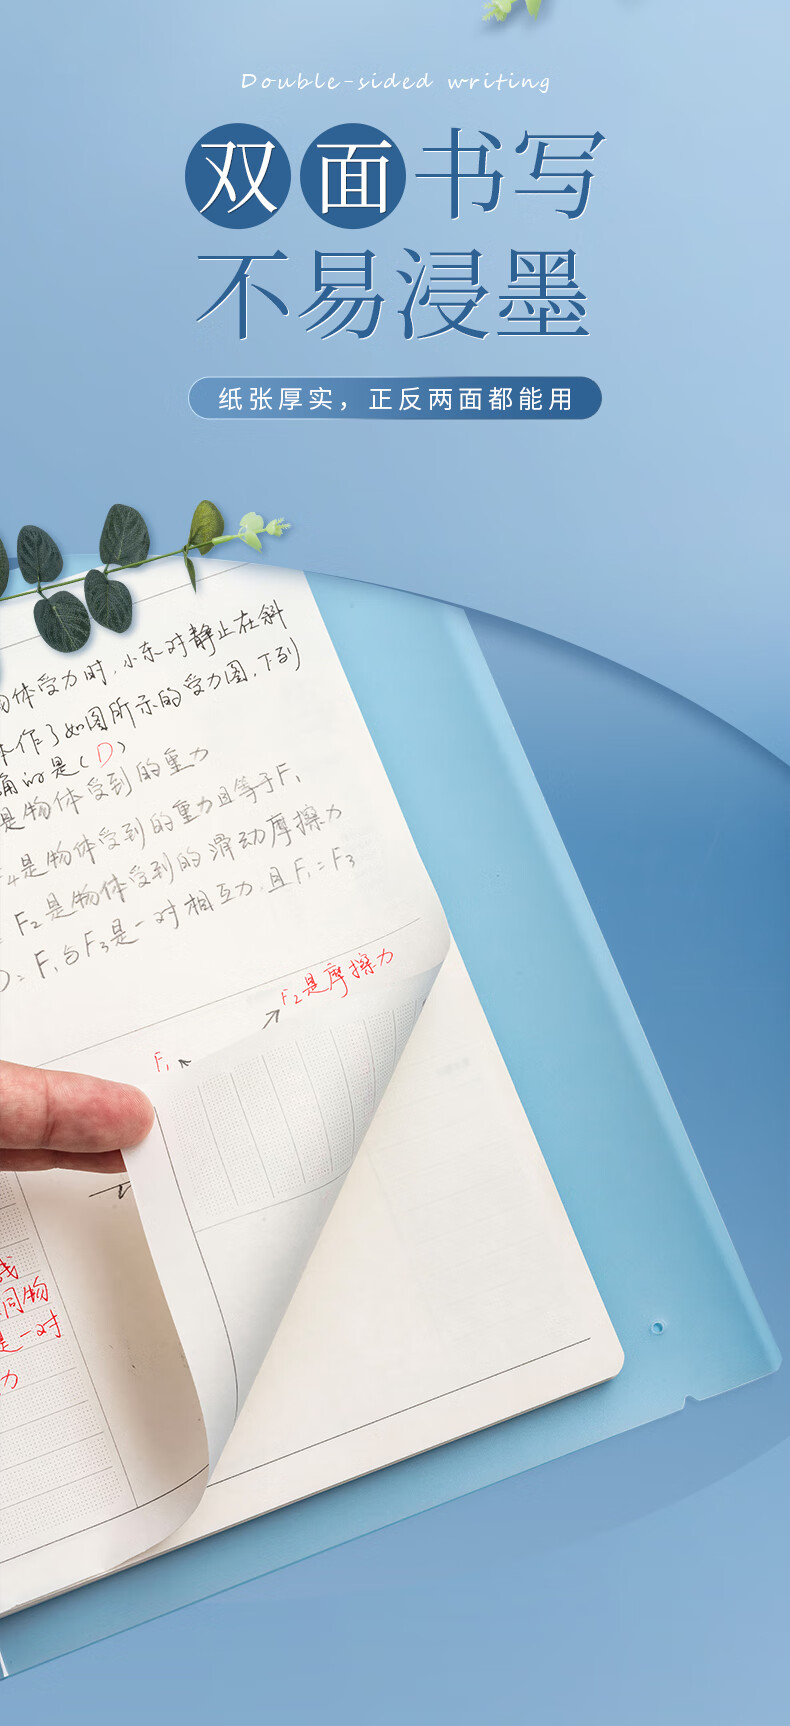 Double-sided writing
双面书写
不易浸墨
纸张厚实，正反两面都能用
体受力时，小东对静止在斜
作了如图所示的受力图，下列
确的是（D）
是物体受到的重力
F4是物体受到的重力且等于F1
F2是物体受到的滑动摩擦力
D：F1台F3是一对相互力，且F1=F3
F2是摩擦力
F1
同物
是一对
力